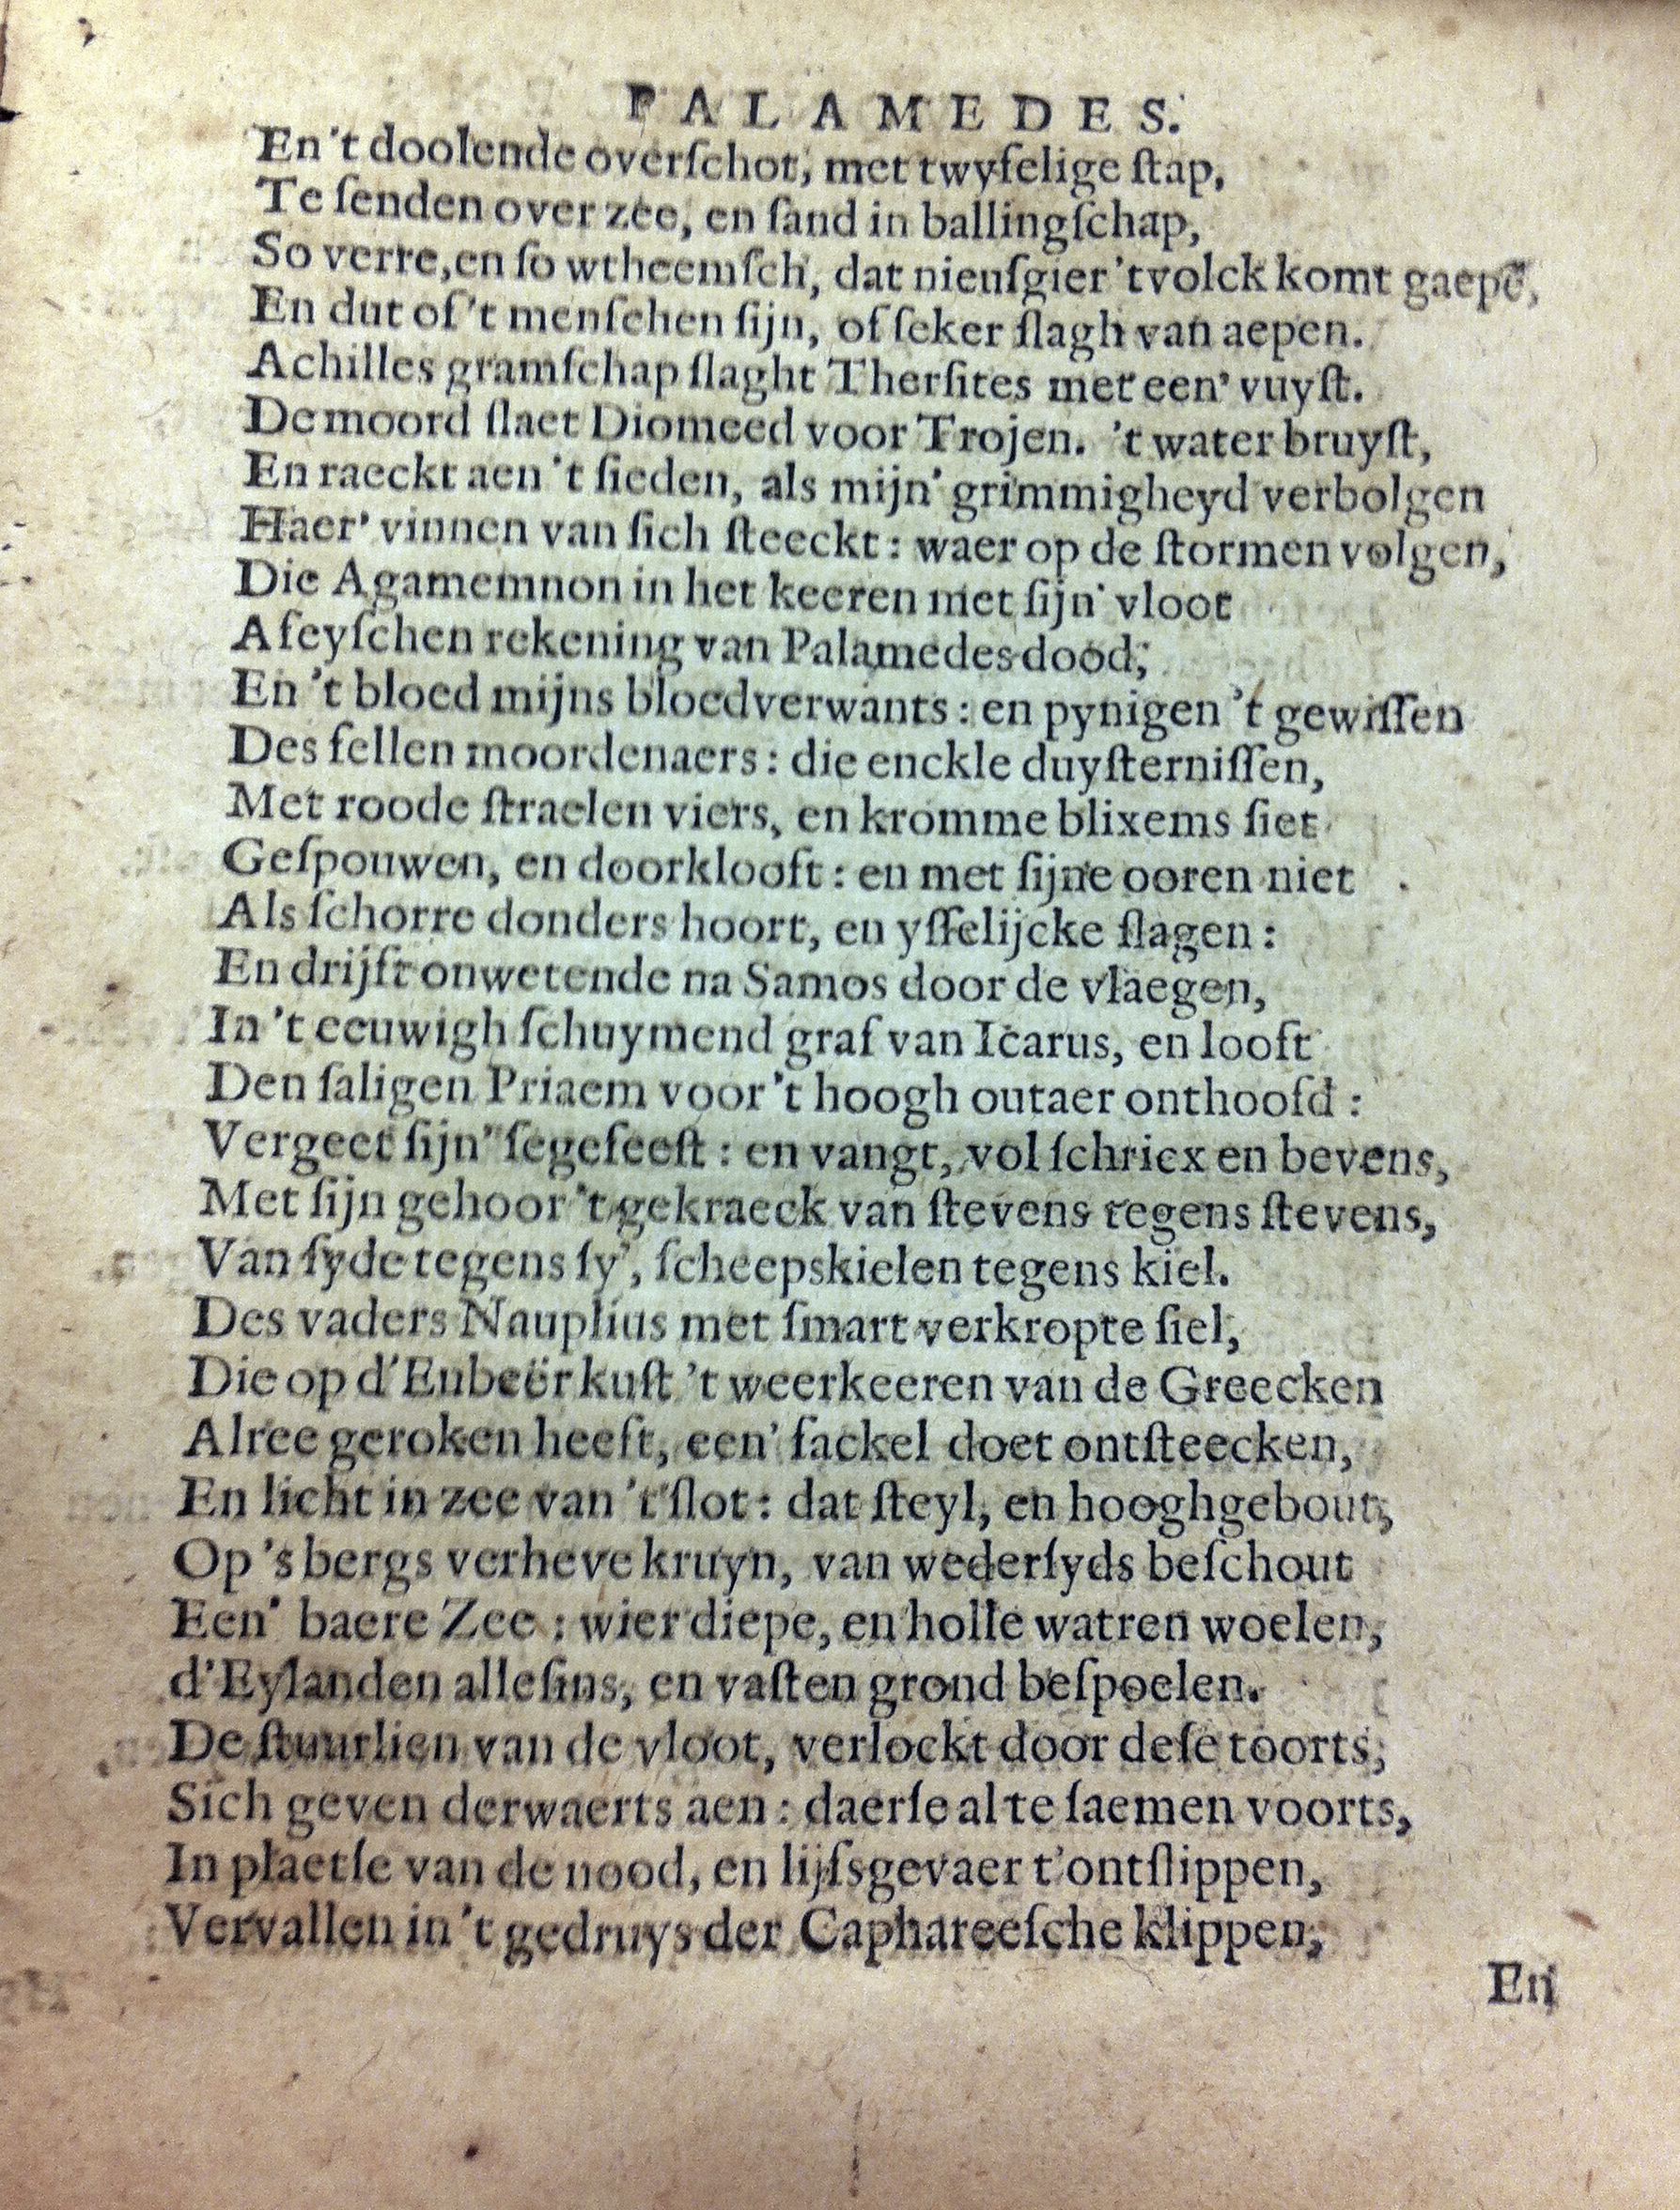 PALAMEDES.
En 't doolende overſchot, met twyfelige ſtap,
Te ſenden over zee, en ſand in ballingſchap,
So verre, en ſo wtheemſch, dat nieuſgier 't volck komt gaepē,
En dut of 't menſchen ſijn, of ſeker ſlagh van aepen.
Achilles gramſchap ſlaght Therſites met een' vuyſt.
De moord ſlaet Diomeed voor Trojen. 't water bruyſt,
En raeckt aen 't ſieden, als mijn' grimmigheyd verbolgen
Haer' vinnen van ſich ſteeckt: waer op de ſtormen volgen,
Die Agamemnon in het keeren met ſijn' vloot
Afeyſchen rekening van Palamedes dood;
En 't bloed mijns bloedverwants: en pynigen 't gewiſſen
Des fellen moordenaers: die enckle duyſterniſſen,
Met roode ſtraelen viers, en kromme blixems ſiet
Geſpouwen, en doorklooft: en met ſijne ooren niet
Als ſchorre donders hoort, en yſſelijcke ſlagen:
En drijft onwetende na Samos door de vlaegen,
In 't eeuwigh ſchuymend graf van Icarus, en looft
Den ſaligen Priaem voor 't hoogh outaer onthoofd:
Vergeet ſijn' ſegefeeſt: en vangt, vol ſchricx en bevens,
Met ſijn gehoor 't gekraeck van ſtevens tegens ſtevens,
Van ſyde tegens ſy', ſcheepskielen tegens kiel.
Des vaders Nauplius met ſmart verkropte ſiel,
Die op d'Eubeër kuſt 't weerkeeren van de Greecken
Alree geroken heeft, een' fackel doet ontſteecken,
En licht in zee van 't ſlot: dat ſteyl, en hooghgebout,
Op 's bergs verheve kruyn, van wederſyds beſchout
Een' baere Zee: wier diepe, en holle watren woelen,
d'Eylanden alleſins, en vaſten grond beſpoelen.
De ſtuurlien van de vloot, verlockt door deſe toorts,
Sich geven derwaerts aen: daerſe al te ſaemen voorts,
In plaetſe van de nood, en lijfsgevaer t'ontſlippen,
Vervallen in 't gedruys der Caphareeſche klippen,
En